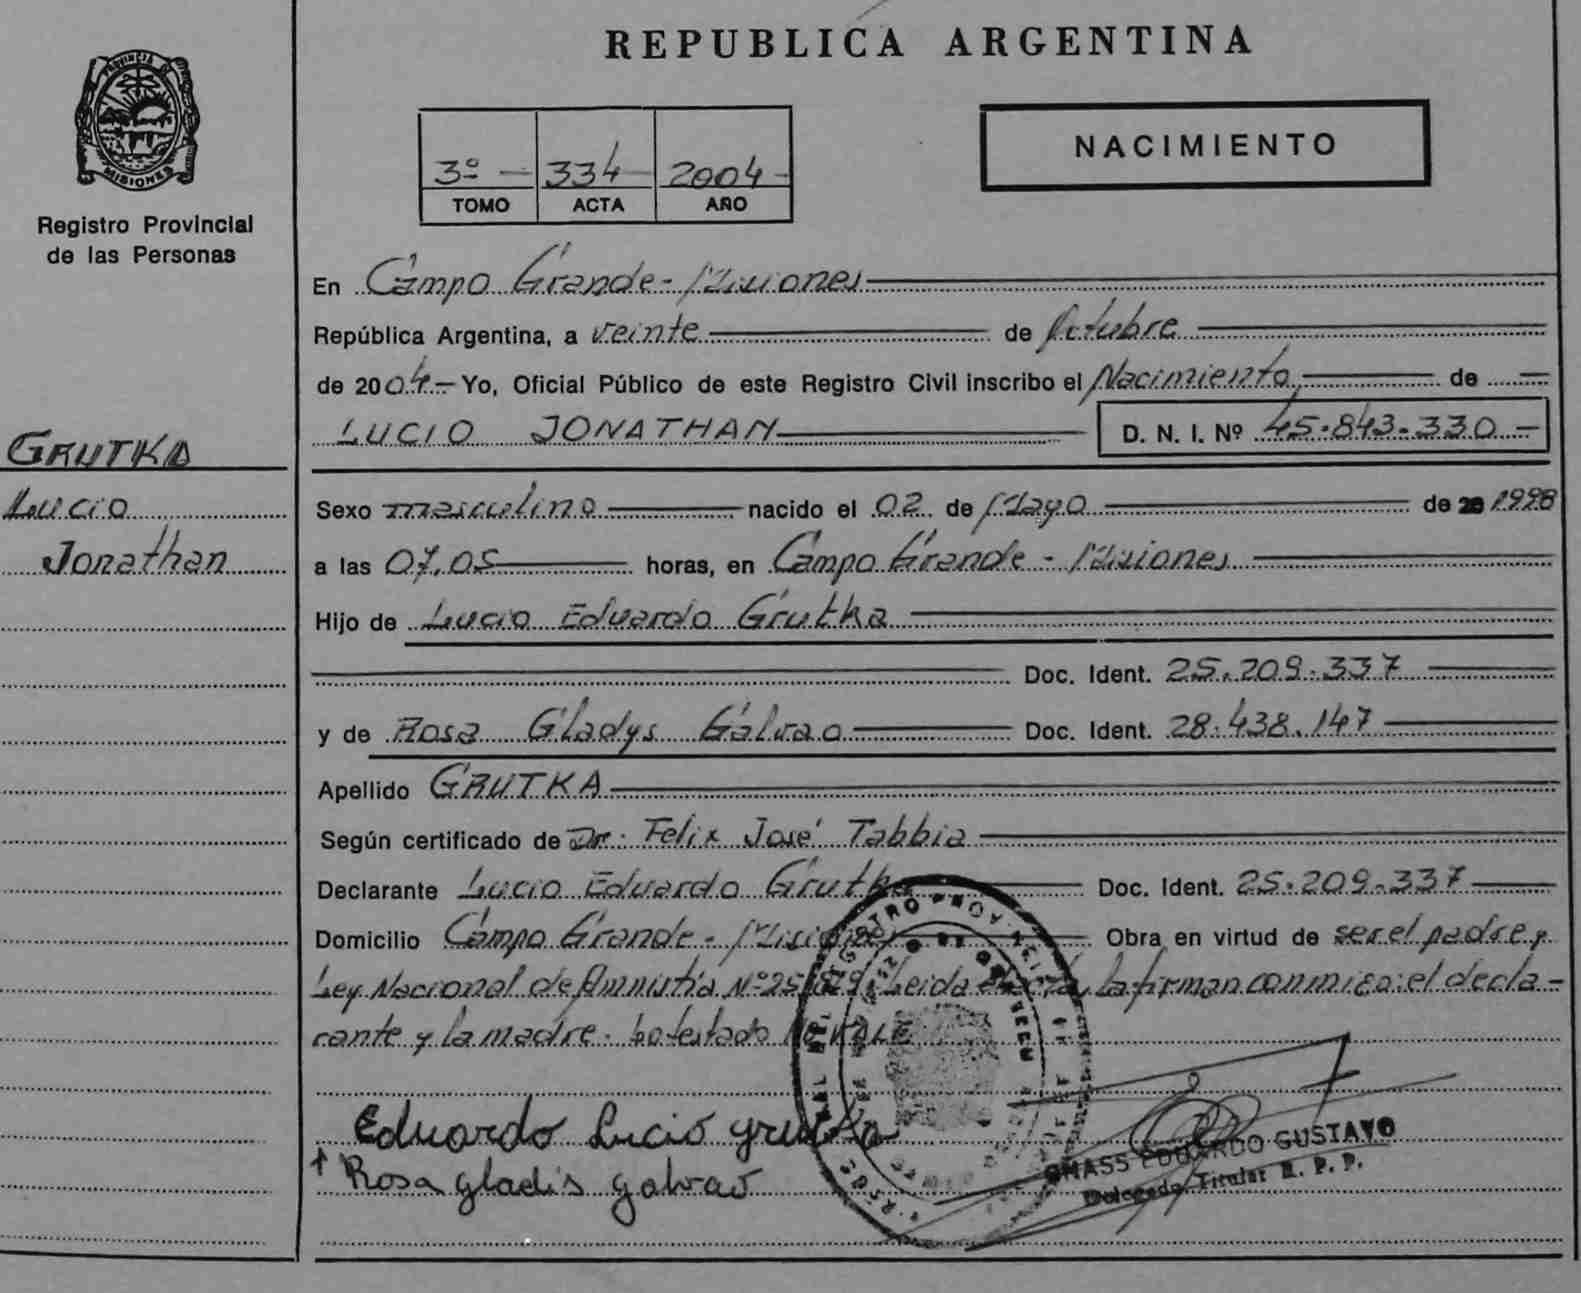 REPUBLICA ARGENTINA
PROVINCIA DE
MISIONES
Registro Provincial
de las Personas
3º 334 2004
TOMO ACTA AÑO
NACIMIENTO
GRUTKA
Lucio
Jonathan
En Campo Grande - Misiones
República Argentina, a veinte de Octubre
de 2004.- Yo, Oficial Público de este Registro Civil inscribo el Nacimiento de
LUCIO JONATHAN D. N. I. Nº 45.843.330
Sexo masculino nacido el 02 de Mayo de 20 1998
a las 07,05 horas, en Campo Grande - Misiones
Hijo de Lucio Eduardo Grutka
Doc. Ident. 25.209.337
y de Rosa Gladys Galvao Doc. Ident. 28.438.147
Apellido GRUTKA
Según certificado de Dr. Felix José Tabbia
Declarante Lucio Eduardo Grutka Doc. Ident. 25.209.337
Domicilio Campo Grande - Misiones Obra en virtud de ser el padre y
Ley Nacional de Amnistía Nº 25.819. Leída el acta, la firman conmigo: el decla-
rante y la madre. Lo testado NO VALE
Eduardo Lucio grutka
Rosa gladis galvao
EDUARDO GUSTAVO
Delegado Titular R. P. P.